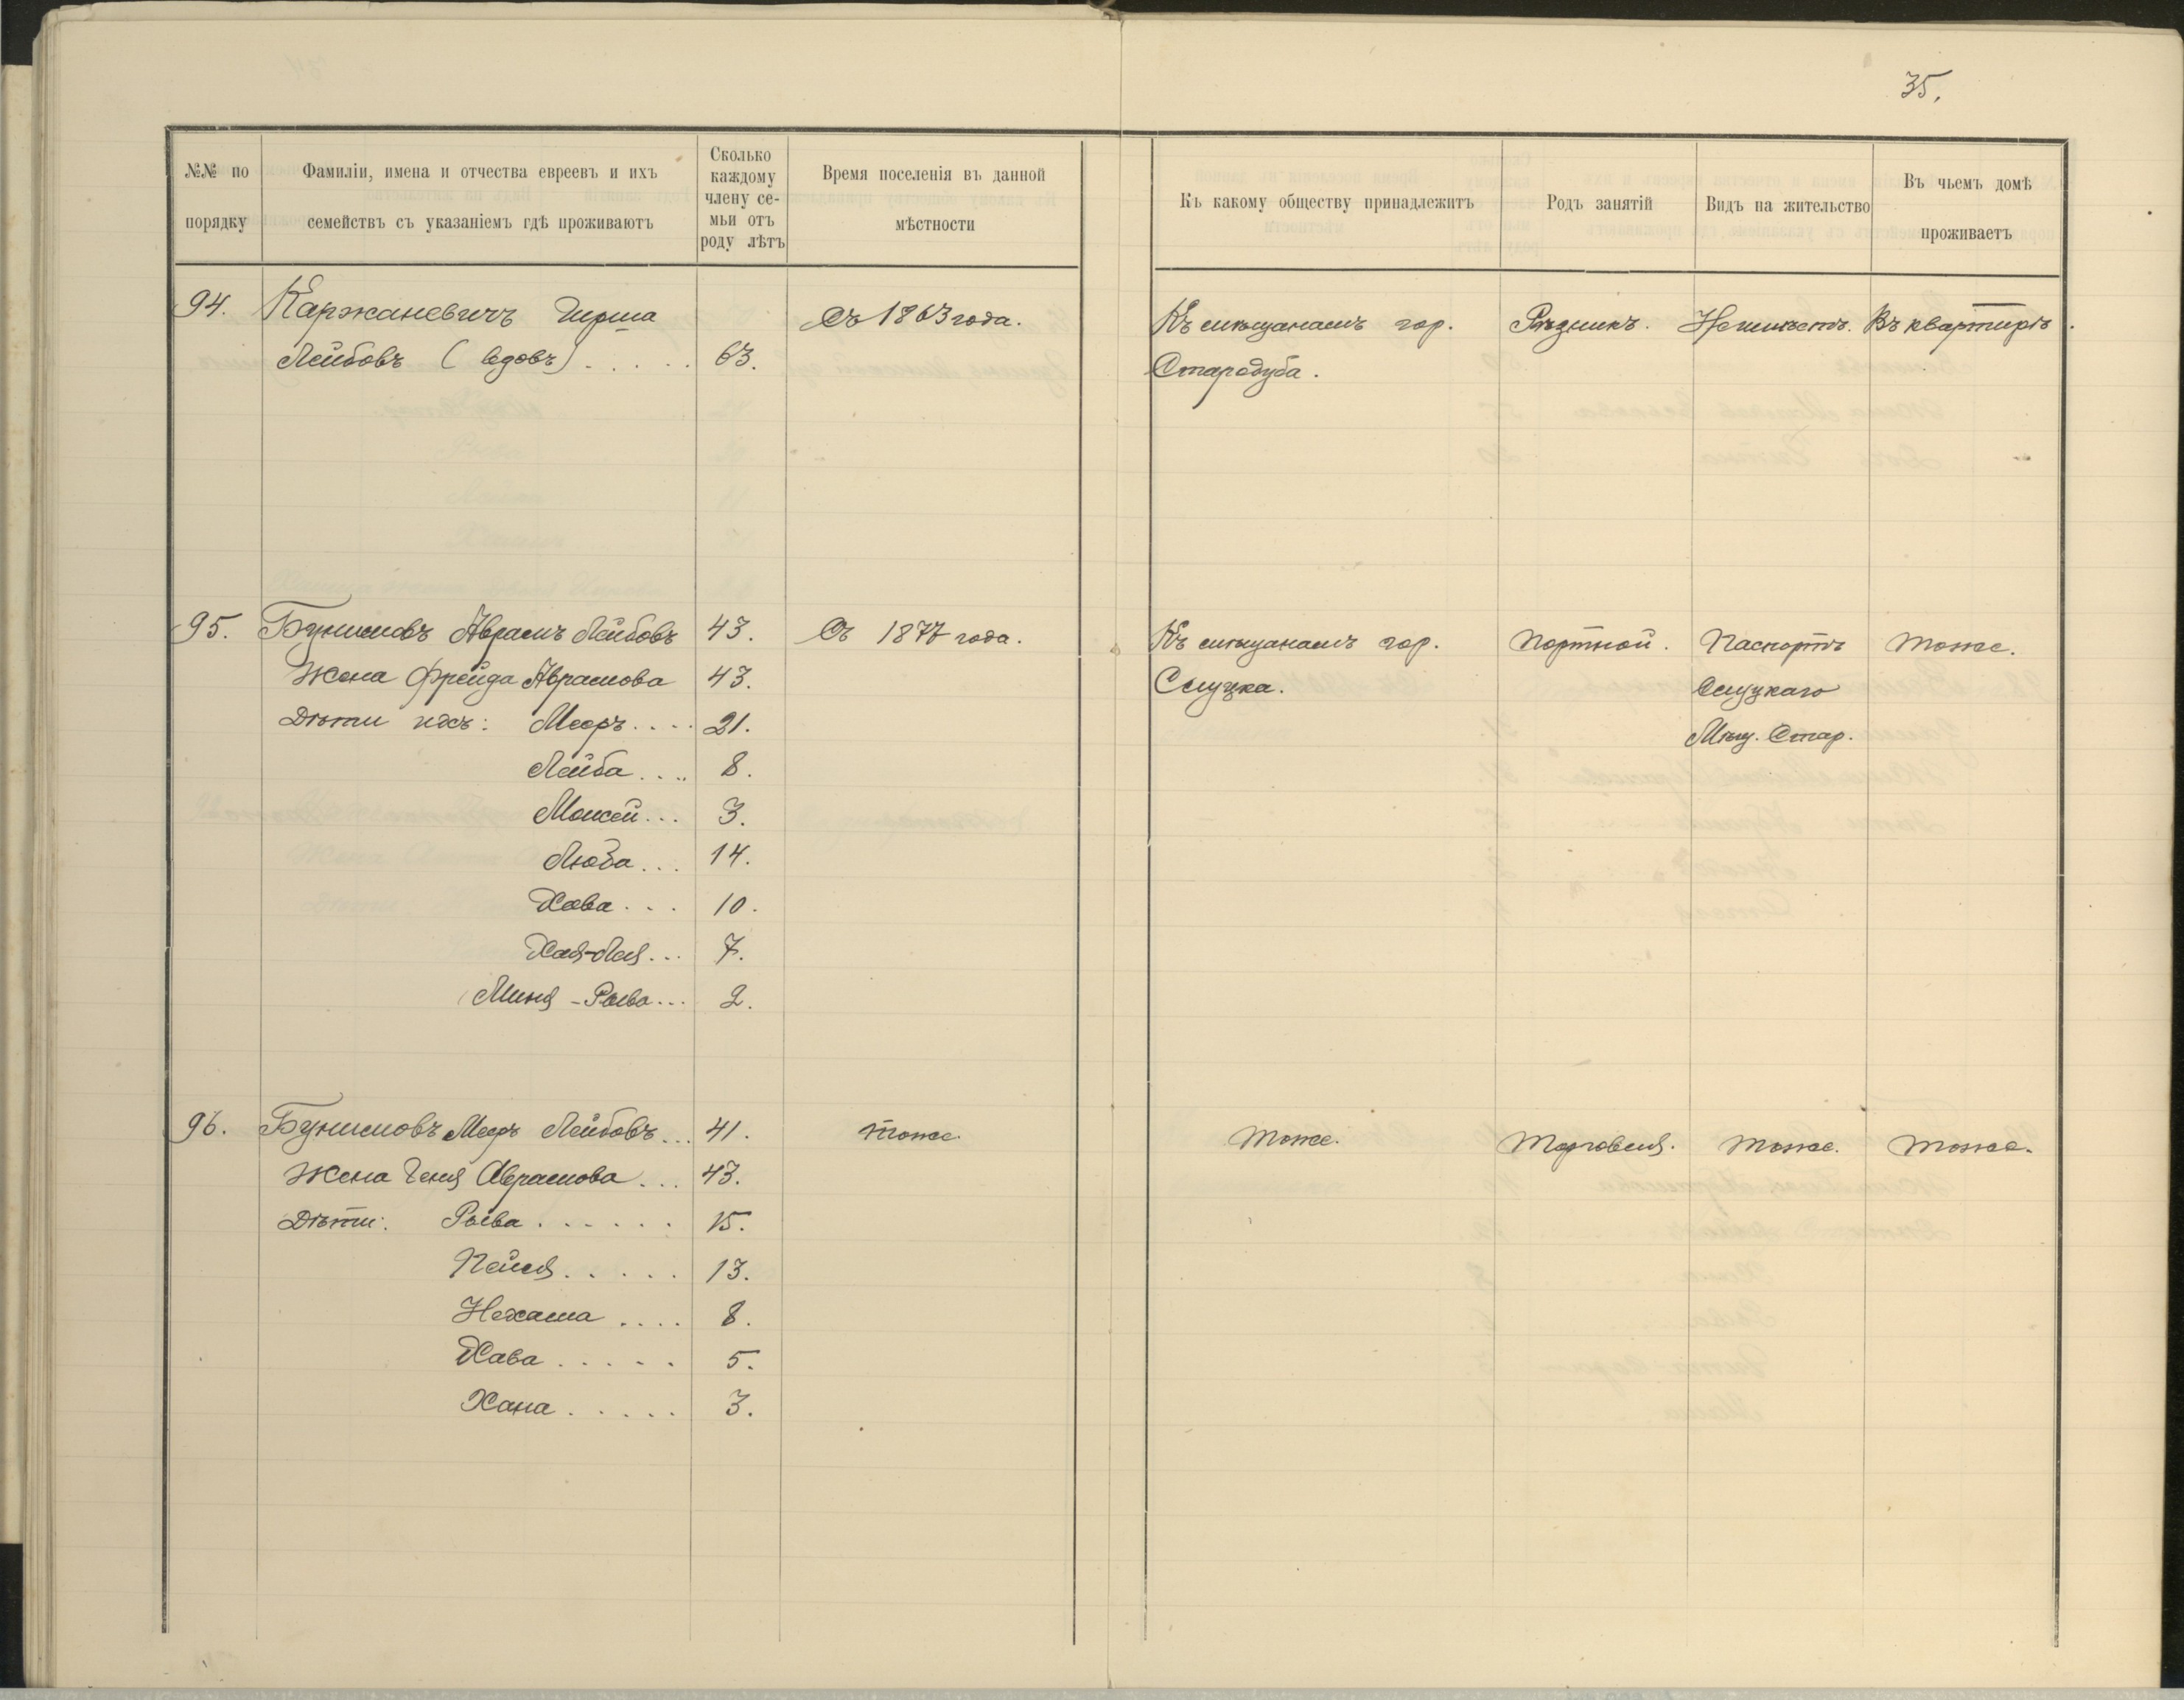 35.
№№ по порядку
Фамиліи, имена и отчества евреевъ и ихъ семействъ съ указаніемъ гдѣ проживаютъ
Сколько каждому члену се-мьи отъ роду лѣтъ
Время поселенія въ данной мѣстности
Къ какому обществу принадлежитъ
Родъ занятій
Видъ на жительство
Въ чьемъ домѣ проживаетъ
94. Каржаневичъ Гирша Съ 1863 года. Къ мѣщанамъ гор. Рѣзникъ. Неимѣетъ. Въ квартирѣ.
Лейбовъ (вдовъ) ..... 63. Стародуба.
95. Бунимовъ Абрамъ Лейбовъ 43. Съ 1877 года. Къ мѣщанамъ гор. Портной. Паспортъ Тоже.
Жена Фрейда Абрамова 43. Слуцка. Слуцкаго
Дѣти ихъ: Мееръ .... 21. Мѣщ. Стар.
Лейба .... 8.
Мовсей ... 3.
Люба ... 14.
Хава ... 10.
Хая-Лея ... 7.
Миня-Рыва ... 2.
96. Бунимовъ Мееръ Лейбовъ ... 41. Тоже. Тоже. Торговля. Тоже. Тоже.
Жена Геня Абрамова ... 43.
Дѣти: Рыва ...... 15.
Пейся ..... 13.
Нехама .... 8.
Хава ..... 5.
Хана ..... 3.